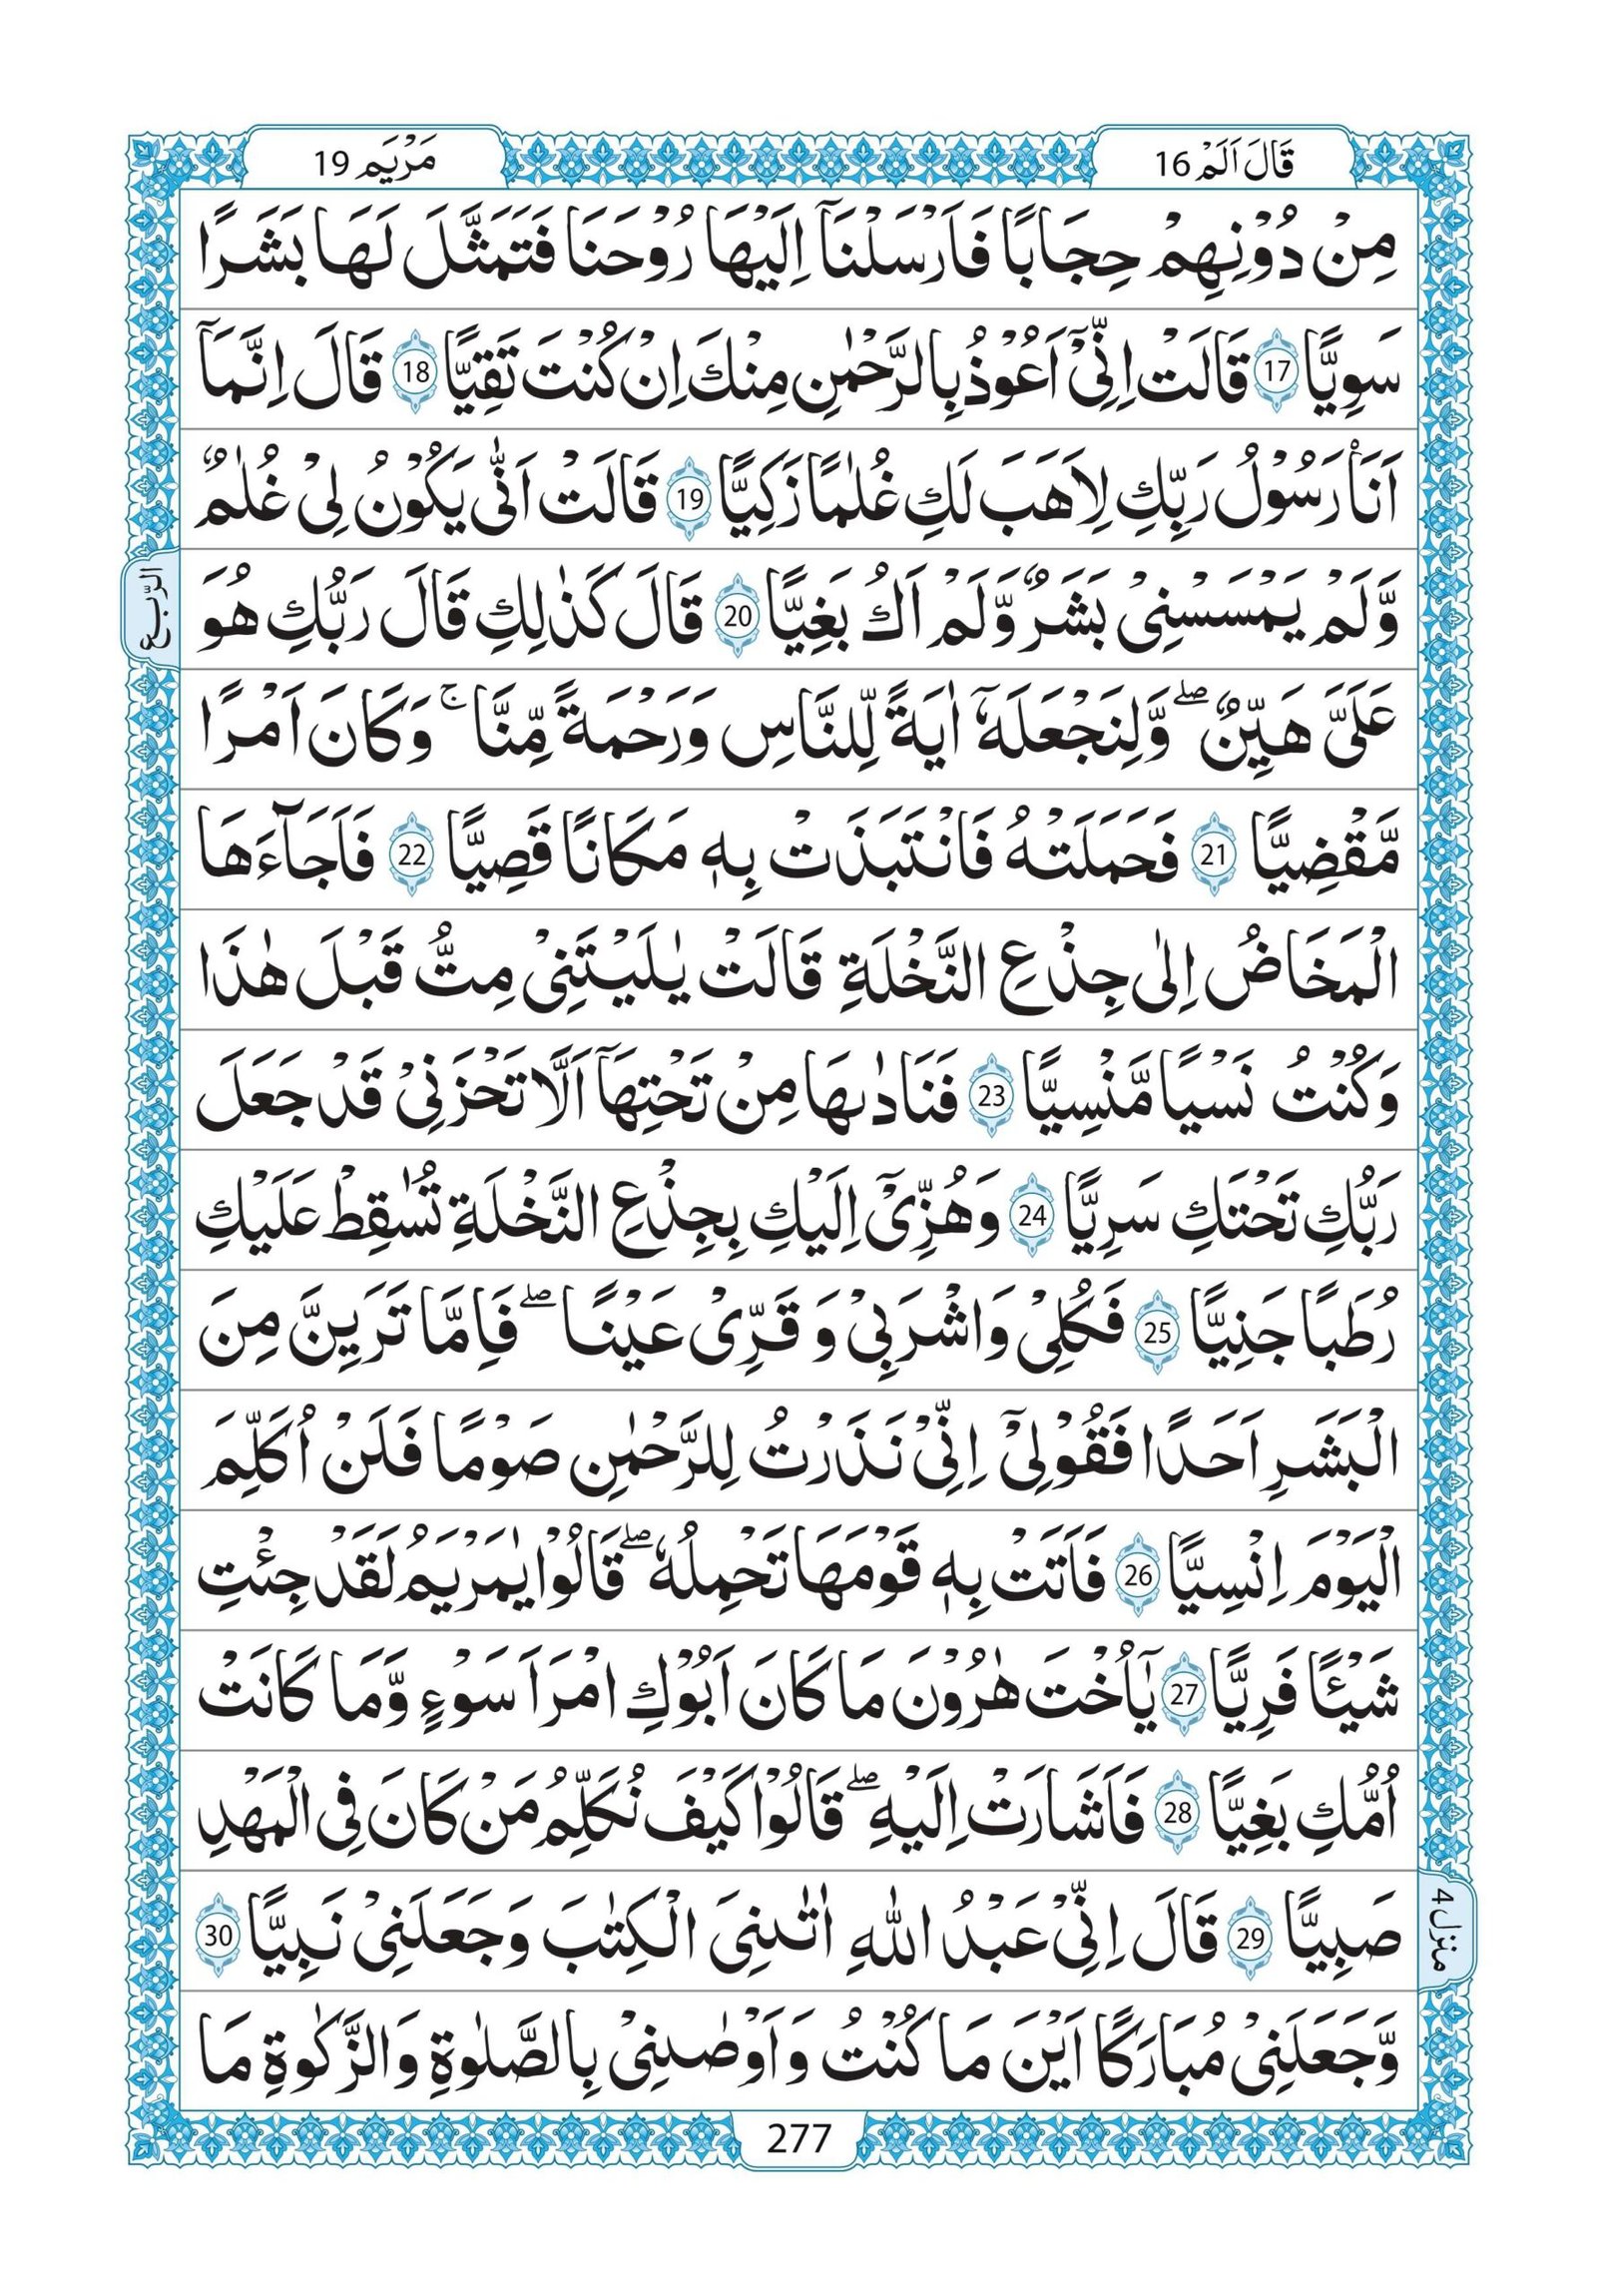 قَالَ اَلَمۡ 16
مَرۡيَم 19
مِنۡ دُوۡنِهِمۡ حِجَابًا فَاَرۡسَلۡنَاۤ اِلَيۡهَا رُوۡحَنَا فَتَمَثَّلَ لَهَا بَشَرًا
سَوِيًّا 17 قَالَتۡ اِنِّىۡۤ اَعُوۡذُ بِالرَّحۡمٰنِ مِنۡكَ اِنۡ كُنۡتَ تَقِيًّا 18 قَالَ اِنَّمَاۤ
اَنَا۟ رَسُوۡلُ رَبِّكِ لِاَهَبَ لَكِ غُلٰمًا زَكِيًّا 19 قَالَتۡ اَنّٰى يَكُوۡنُ لِىۡ غُلٰمٌ
وَّلَمۡ يَمۡسَسۡنِىۡ بَشَرٌ وَّلَمۡ اَكُ بَغِيًّا 20 قَالَ كَذٰلِكِ قَالَ رَبُّكِ هُوَ
الرّبع
عَلَىَّ هَيِّنٌ ۖ وَّلِنَجۡعَلَهٗۤ اٰيَةً لِّلنَّاسِ وَرَحۡمَةً مِّنَّا ۚ وَكَانَ اَمۡرًا
مَّقۡضِيًّا 21 فَحَمَلَتۡهُ فَانْتَبَذَتۡ بِهٖ مَكَانًا قَصِيًّا 22 فَاَجَآءَهَا
الۡمَخَاضُ اِلٰى جِذۡعِ النَّخۡلَةِ قَالَتۡ يٰلَيۡتَنِىۡ مِتُّ قَبۡلَ هٰذَا
وَكُنۡتُ نَسۡيًا مَّنۡسِيًّا 23 فَنَادٰىهَا مِنۡ تَحۡتِهَاۤ اَلَّا تَحۡزَنِىۡ قَدۡ جَعَلَ
رَبُّكِ تَحۡتَكِ سَرِيًّا 24 وَهُزِّىۡۤ اِلَيۡكِ بِجِذۡعِ النَّخۡلَةِ تُسٰقِطۡ عَلَيۡكِ
رُطَبًا جَنِيًّا 25 فَكُلِىۡ وَاشۡرَبِىۡ وَ قَرِّىۡ عَيۡنًا ۖ فَاِمَّا تَرَيِنَّ مِنَ
الۡبَشَرِ اَحَدًا فَقُوۡلِىۡۤ اِنِّىۡ نَذَرۡتُ لِلرَّحۡمٰنِ صَوۡمًا فَلَنۡ اُكَلِّمَ
الۡيَوۡمَ اِنۡسِيًّا 26 فَاَتَتۡ بِهٖ قَوۡمَهَا تَحۡمِلُهٗ ۖ قَالُوۡا يٰمَرۡيَمُ لَقَدۡ جِئۡتِ
شَيۡـًٔـا فَرِيًّا 27 يٰۤاُخۡتَ هٰرُوۡنَ مَا كَانَ اَبُوۡكِ امۡرَاَ سَوۡءٍ وَّمَا كَانَتۡ
اُمُّكِ بَغِيًّا 28 فَاَشَارَتۡ اِلَيۡهِ ۖ قَالُوۡا كَيۡفَ نُكَلِّمُ مَنۡ كَانَ فِى الۡمَهۡدِ
صَبِيًّا 29 قَالَ اِنِّىۡ عَبۡدُ اللّٰهِ اٰتٰٮنِىَ الۡكِتٰبَ وَجَعَلَنِىۡ نَبِيًّا 30
منزل 4
وَّجَعَلَنِىۡ مُبَارَكًا اَيۡنَ مَا كُنۡتُ وَاَوۡصٰنِىۡ بِالصَّلٰوةِ وَالزَّكٰوةِ مَا
277